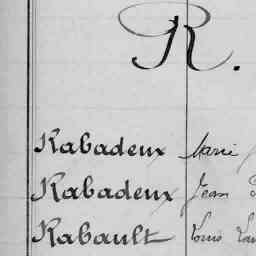 R.
Rabadeux Marie
Rabadeux Jean
Rabault Louis